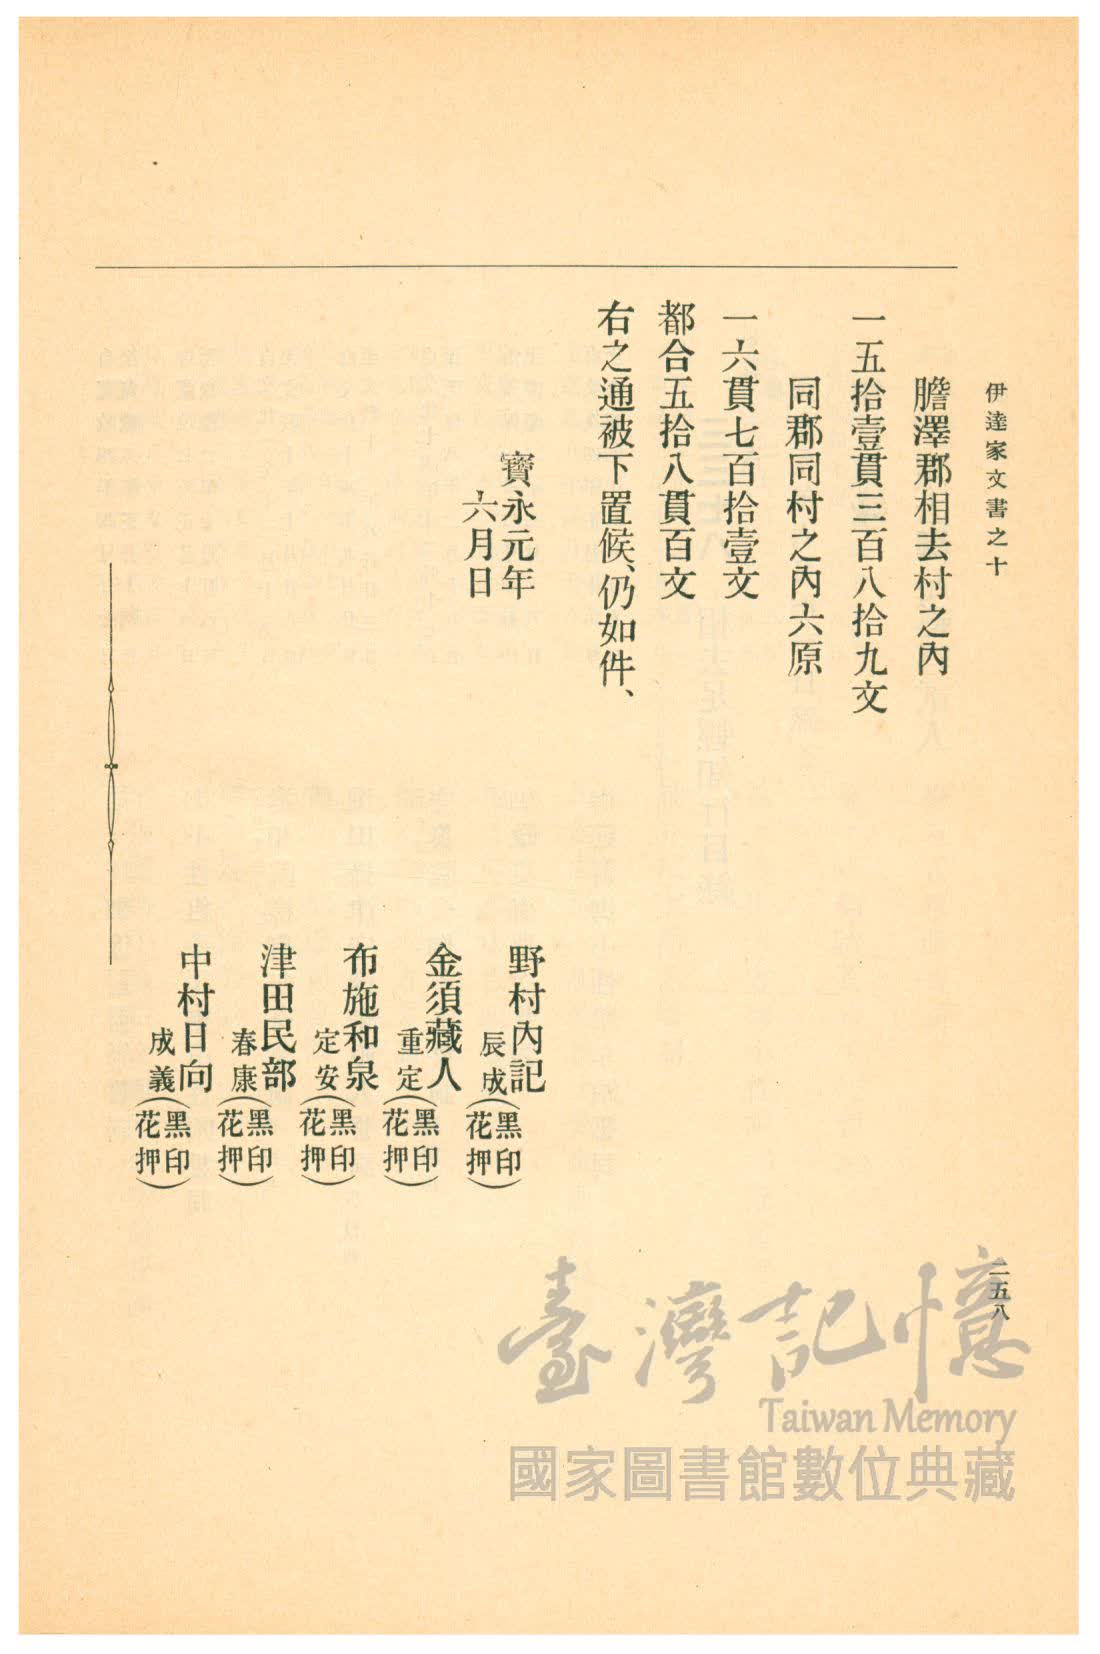 伊達家文書之十
二五八
膽澤郡相去村之內
一五拾壹貫三百八拾九文
同郡同村之內六原
一六貫七百拾壹文
都合五拾八貫百文
右之通被下置候、仍如件、
寶永元年
六月日
野村內記
辰成(黑印)(花押)
金須藏人
重定(黑印)(花押)
布施和泉
定安(黑印)(花押)
津田民部
春康(黑印)(花押)
中村日向
成義(黑印)(花押)
臺灣記憶
Taiwan Memory
國家圖書館數位典藏